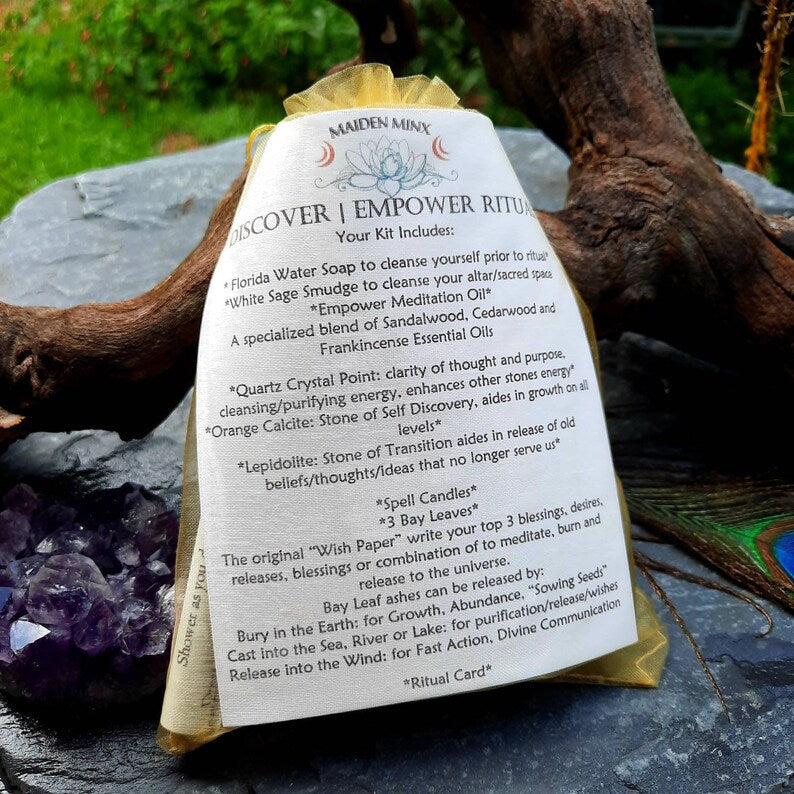 MAIDEN MINX
DISCOVER | EMPOWER RITUAL
Your Kit Includes:
*Florida Water Soap to cleanse yourself prior to ritual*
*White Sage Smudge to cleanse your altar/sacred space
*Empower Meditation Oil*
A specialized blend of Sandalwood, Cedarwood and
Frankincense Essential Oils
*Quartz Crystal Point: clarity of thought and purpose,
cleansing/purifying energy, enhances other stones energy*
*Orange Calcite: Stone of Self Discovery, aides in growth on all
levels*
*Lepidolite: Stone of Transition aides in release of old
beliefs/thoughts/ideas that no longer serve us*
*Spell Candles*
*3 Bay Leaves*
The original “Wish Paper” write your top 3 blessings, desires,
releases, blessings or combination of to meditate, burn and
release to the universe.
Bay Leaf ashes can be released by:
Bury in the Earth: for Growth, Abundance, “Sowing Seeds”
Cast into the Sea, River or Lake: for purification/release/wishes
Release into the Wind: for Fast Action, Divine Communication
*Ritual Card*
Shower as you